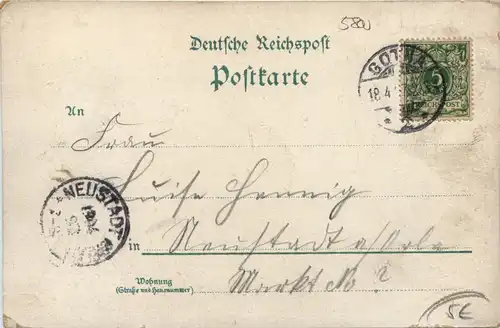 580
Deutsche Reichspost
Postkarte
GOTHA
18.4
5
REICHSPOST
An
Frau
Luise Hennig
NEUSTADT
in Neustadt a/Orla
Wohnung
(Straße und Hausnummer)
Markt No
5E